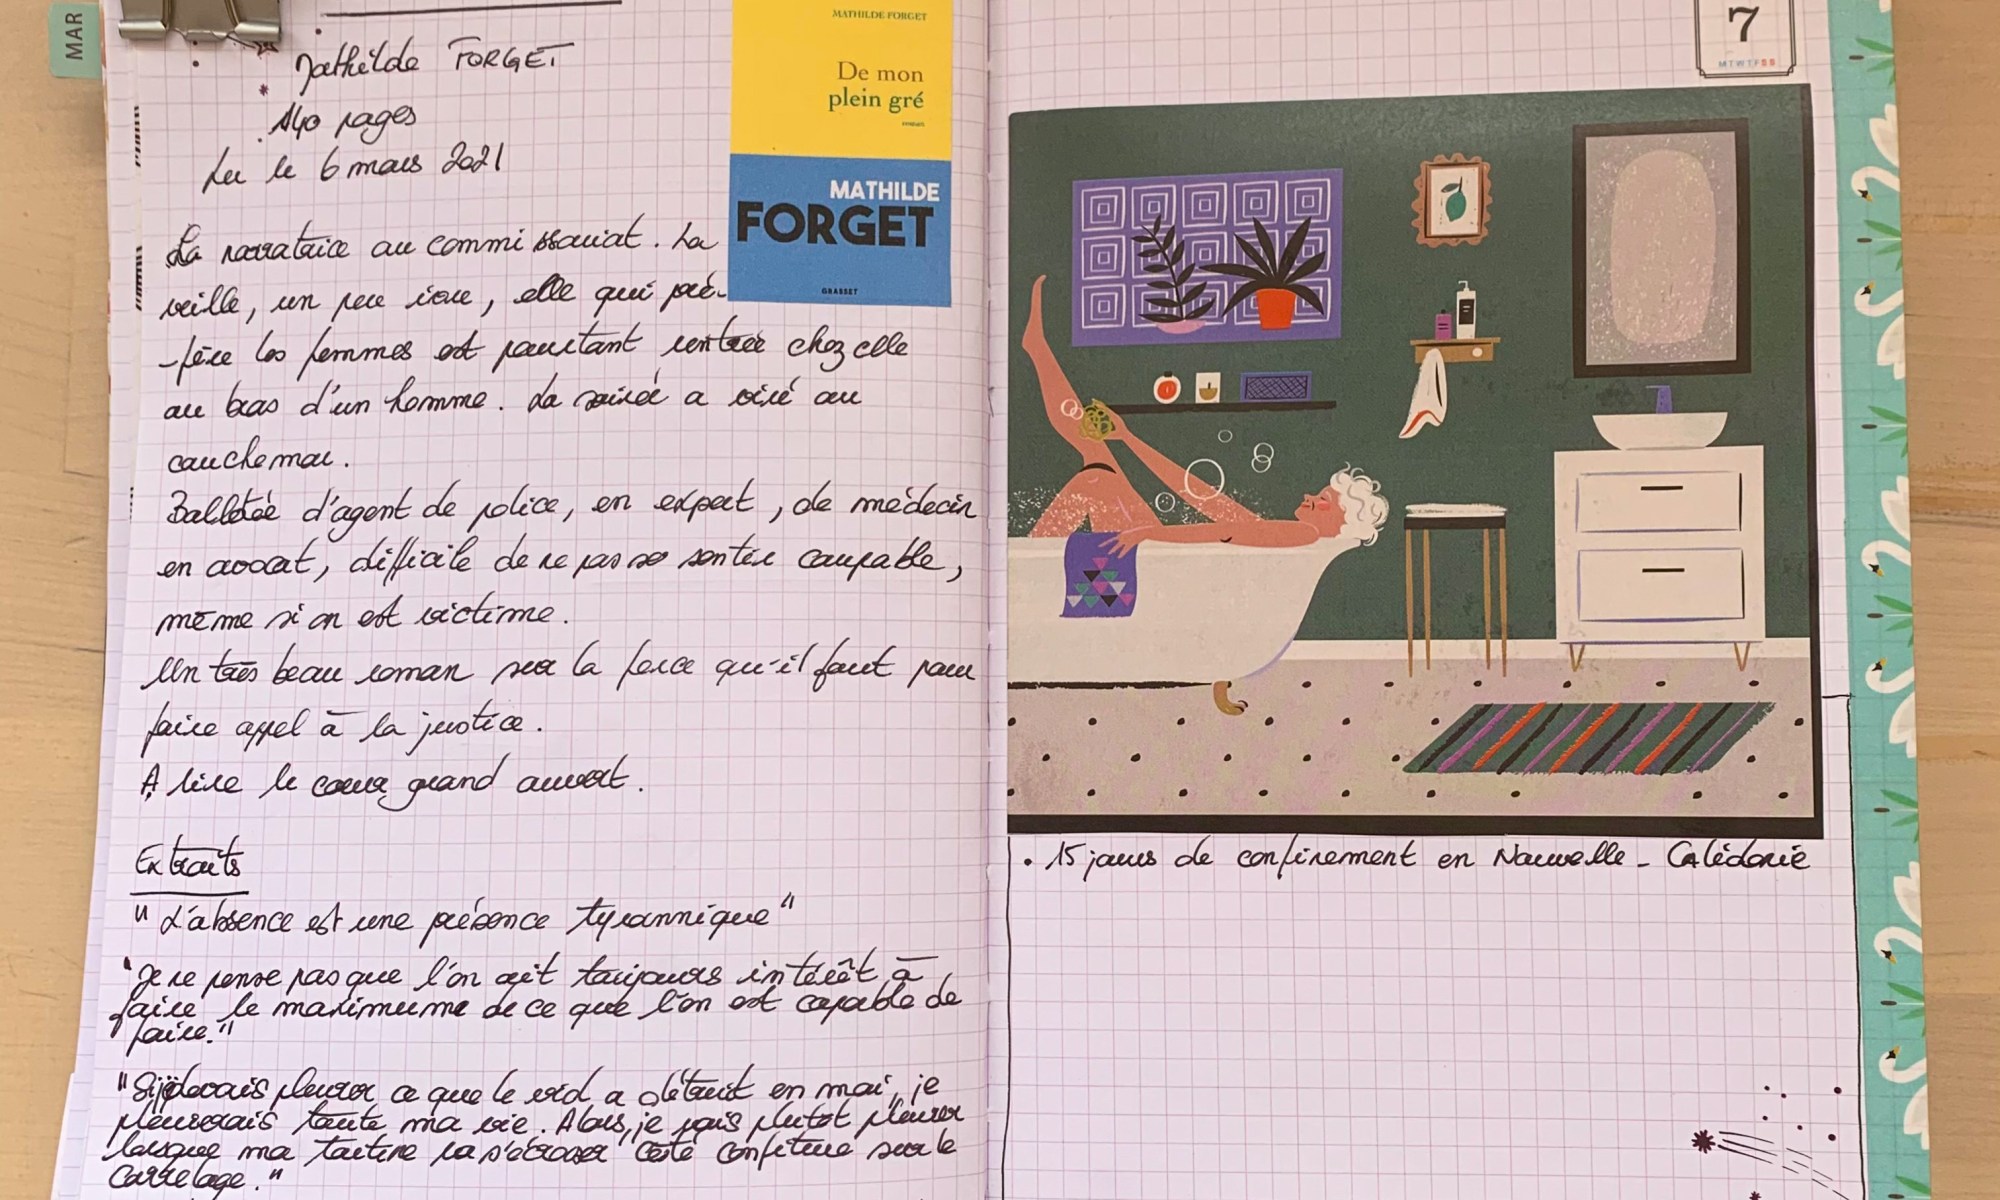 MAR
Mathilde FORGET
140 pages
Lu le 6 mars 2021
MATHILDE FORGET
De mon
plein gré
roman
MATHILDE
FORGET
GRASSET
La narratrice au commissariat. La
veille, un peu ivre, elle qui pré-
-fère les femmes est pourtant rentrée chez elle
au bras d'un homme. La soirée a viré au
cauchemar.
Ballotée d'agent de police, en expert, de médecin
en avocat, difficile de ne pas se sentir coupable,
même si on est victime.
Un très beau roman sur la force qu'il faut pour
faire appel à la justice.
A lire le coeur grand ouvert.
Extraits
"L'absence est une présence tyrannique"
"Je ne pense pas que l'on ait toujours intérêt à
faire le maximum de ce que l'on est capable de
faire."
"Si je devais pleurer ce que le viol a détruit en moi, je
pleurerais toute ma vie. Alors, je vais plutôt pleurer
lorsque ma tartine va s'écraser côté confiture sur le
carrelage."
7
MTWTFSS
• 15 jours de confinement en Nouvelle-Calédonie